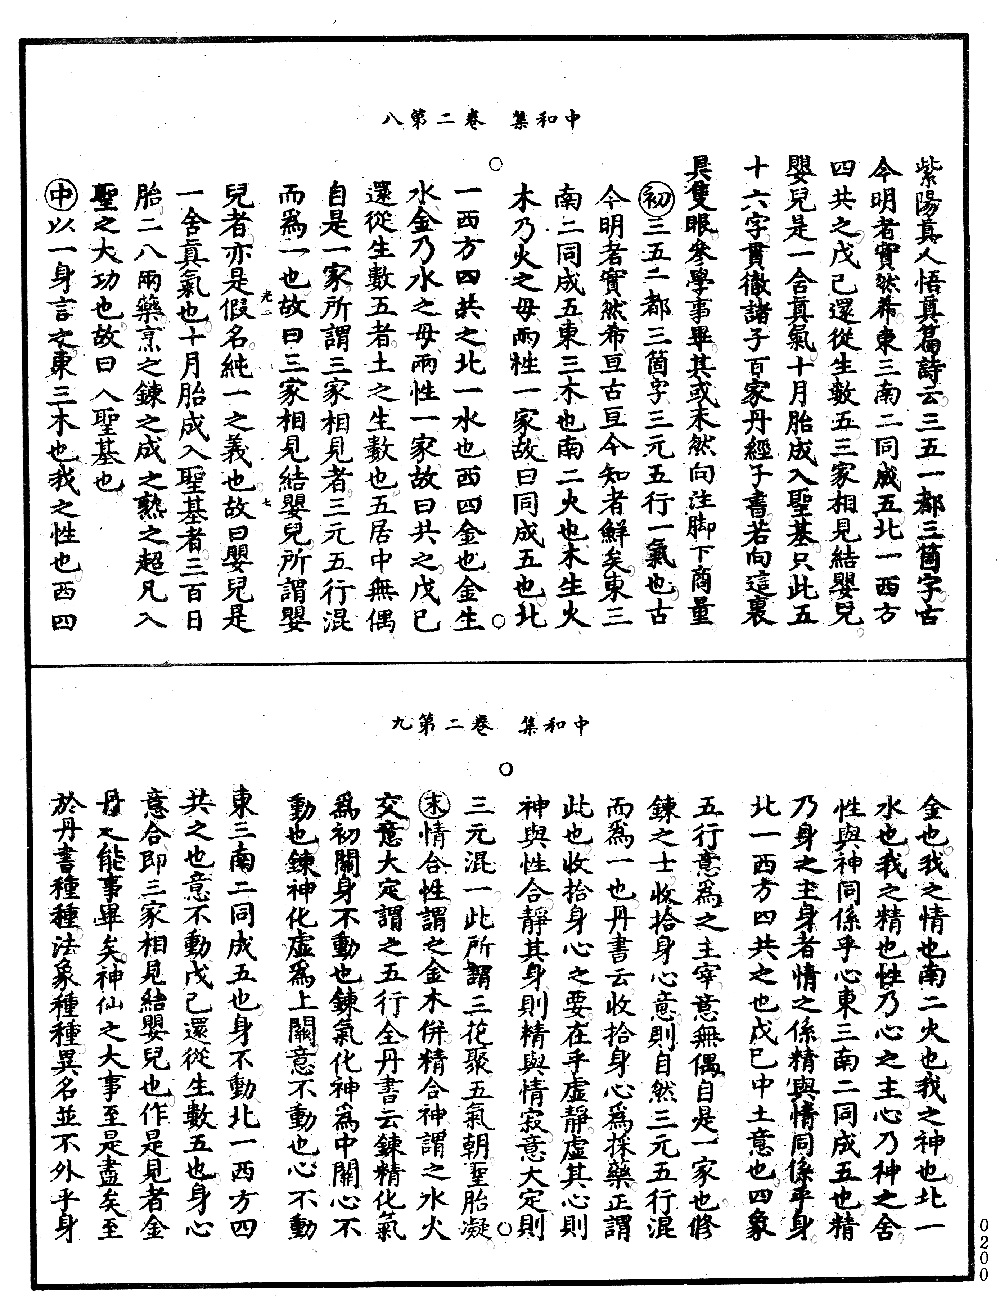 中和集　卷二第八
紫陽真人悟真篇詩云三五一都三箇字古
今明者實然希東三南二同成五北一西方
四共之戊己還從生數五三家相見結嬰兒
嬰兒是一含真氣十月胎成入聖基只此五
十六字貫徹諸子百家丹經子書若向這裏
具隻眼參學事畢其或未然向注脚下商量
初三五二都三箇字三元五行一氣也古
今明者實然希亘古亘今知者鮮矣東三
南二同成五東三木也南二火也木生火
木乃火之母兩性一家故曰同成五也北
一西方四共之北一水也西四金也金生
水金乃水之母兩性一家故曰共之戊己
還從生數五者土之生數也五居中無偶
自是一家所謂三家相見者三元五行混
而為一也故曰三家相見結嬰兒所謂嬰
光一　七
兒者亦是假名純一之義也故曰嬰兒是
一含真氣也十月胎成入聖基者三百日
胎二八兩藥烹之鍊之成之熟之超凡入
聖之大功也故曰入聖基也
中以一身言之東三木也我之性也西四
中和集　卷二第九
金也我之情也南二火也我之神也北一
水也我之精也性乃心之主心乃神之舍
性與神同係乎心東三南二同成五也精
乃身之主身者情之係精與情同係乎身
北一西方四共之也戊己中土意也四象
五行意為之主宰意無偶自是一家也修
鍊之士收拾身心意則自然三元五行混
而為一也丹書云收拾身心為採藥正謂
此也收拾身心之要在乎虛靜虛其心則
神與性合靜其身則精與情寂意大定則
三元混一此所謂三花聚五氣朝聖胎凝
末情合性謂之金木併精合神謂之水火
交意大定謂之五行全丹書云鍊精化氣
為初關身不動也鍊氣化神為中關心不
動也鍊神化虛為上關意不動也心不動
東三南二同成五也身不動北一西方四
共之也意不動戊己還從生數五也身心
意合即三家相見結嬰兒也作是見者金
丹之能事畢矣神仙之大事至是盡矣至
於丹書種種法象種種異名並不外乎身
0200